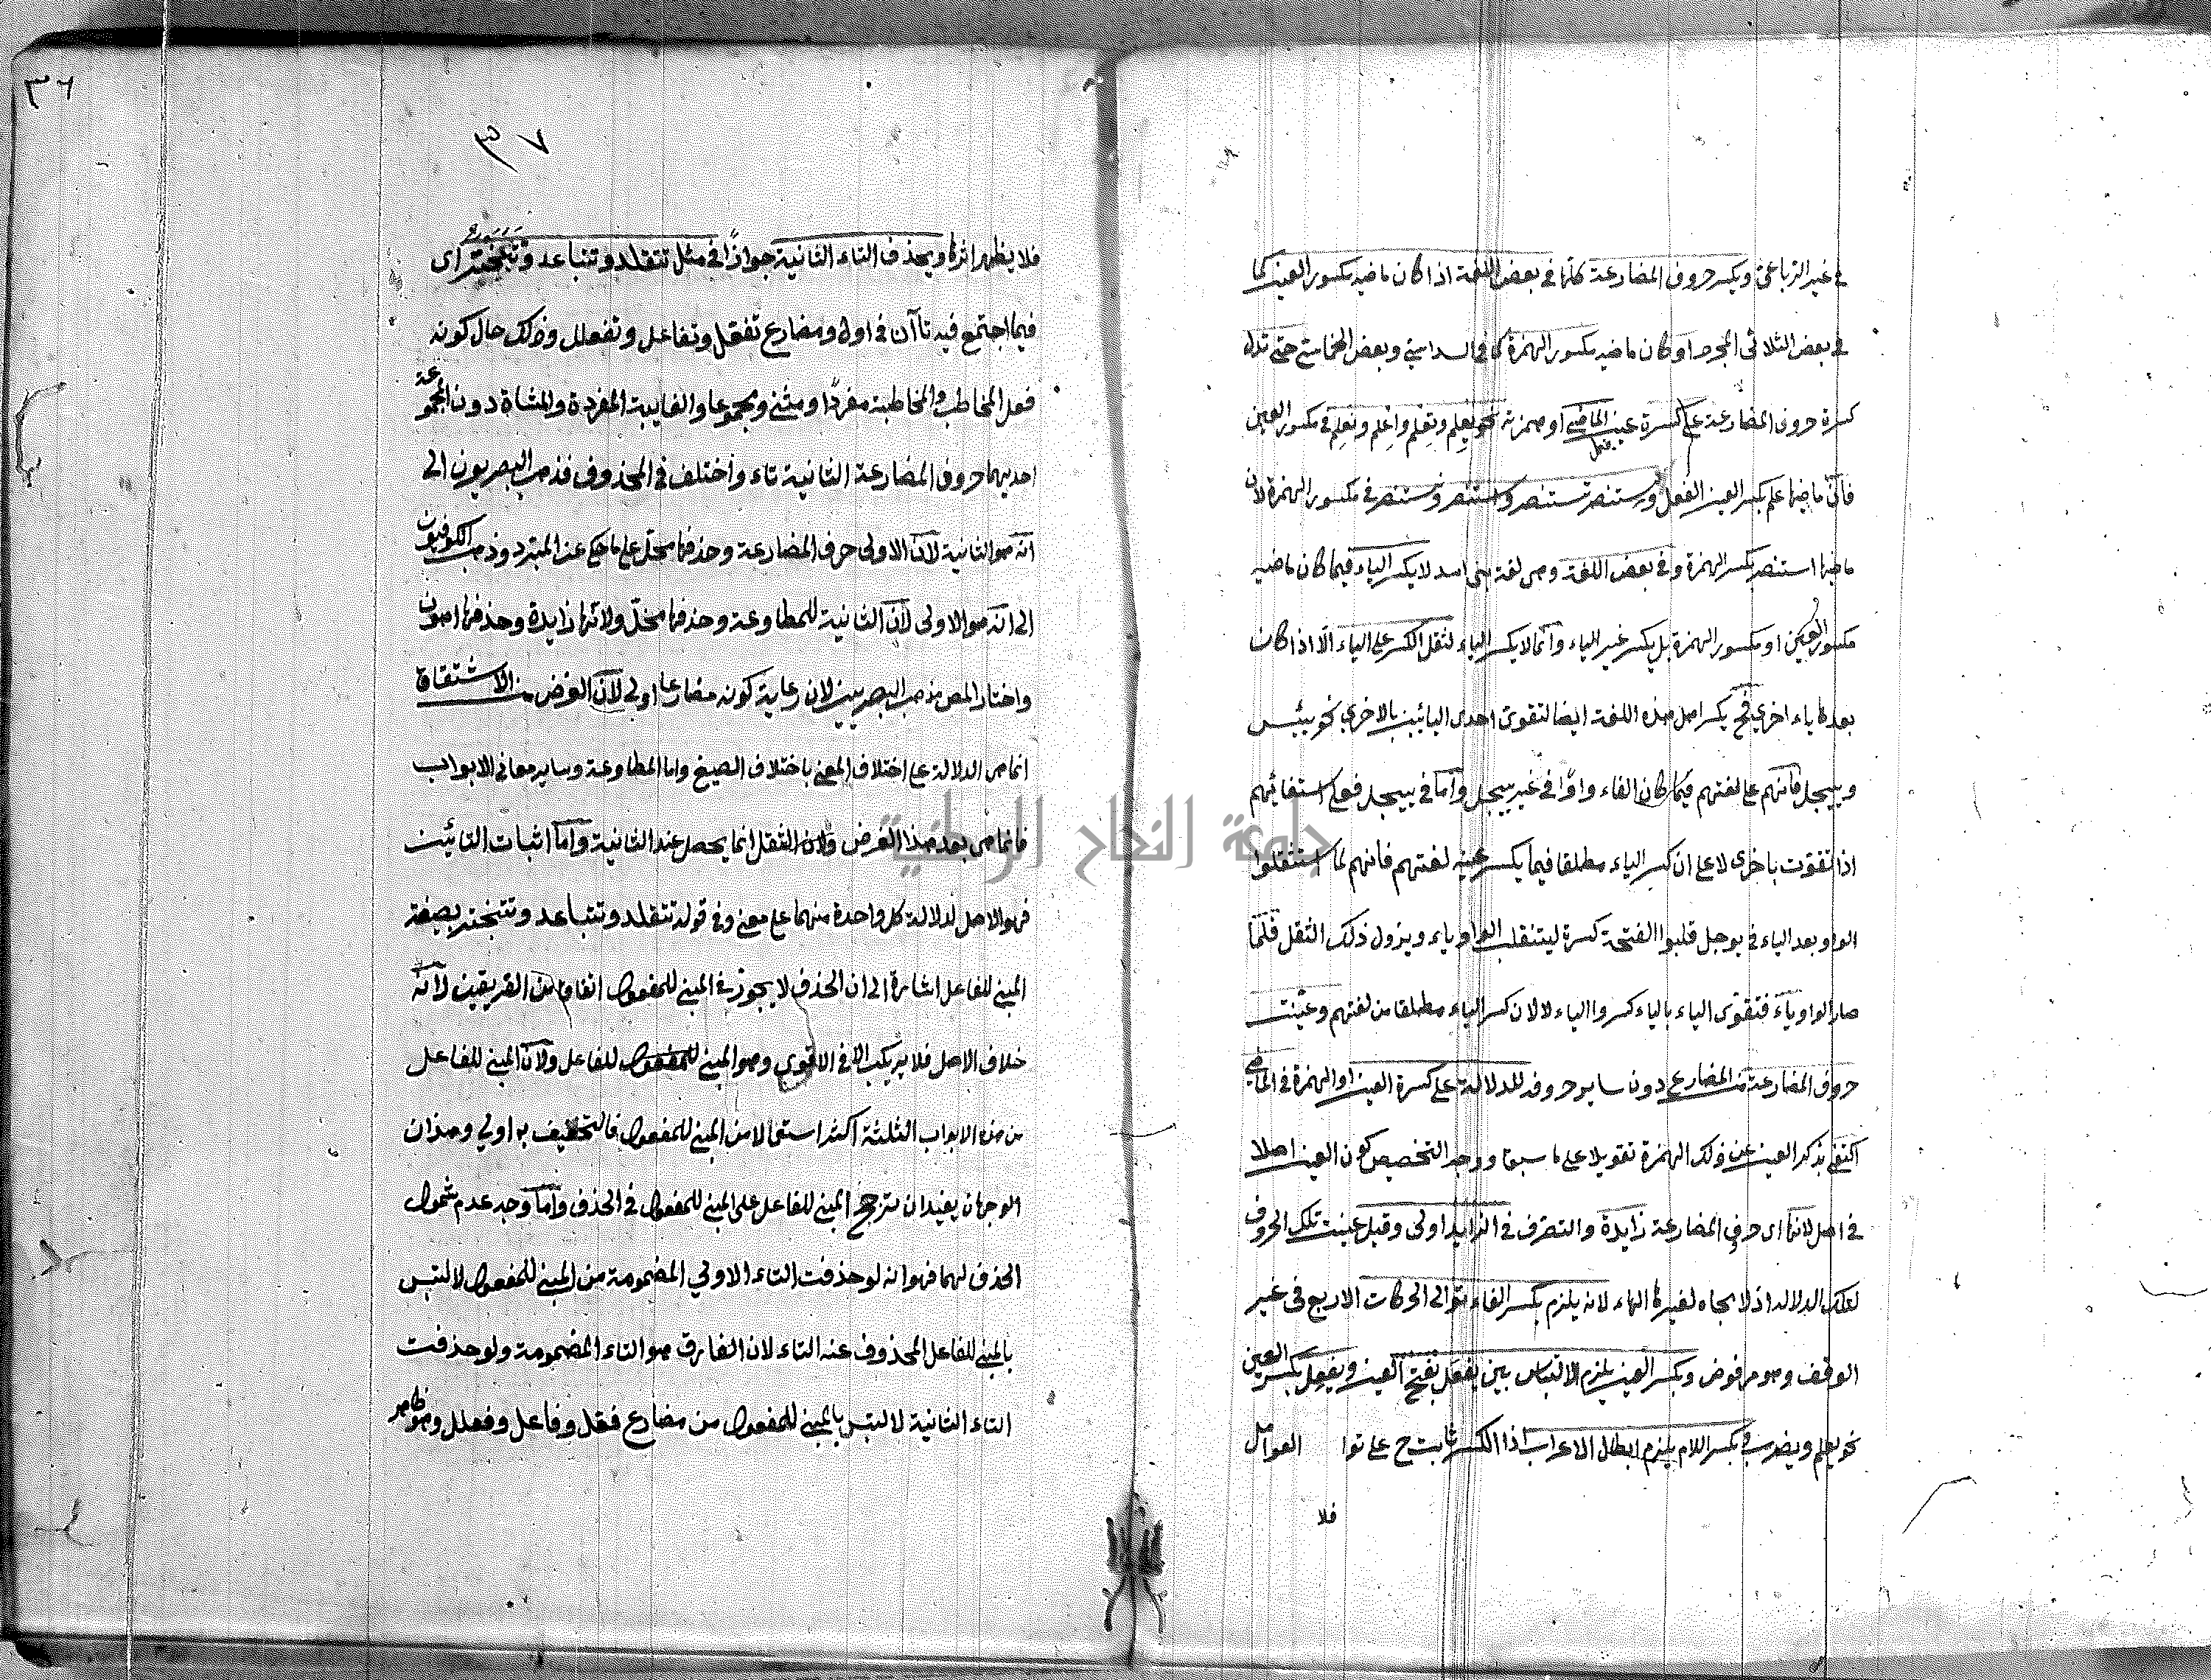 في غير الرباعي ويكسر حروف المضارعة كلها في بعض اللغة اذا كان ماضيه مكسور العين كما
في بعض الثلاثي المجرد او كان ماضيه مكسور الهمزة كما في السداسي وبعض الخماسي حتى تدل
كسرة حروف المضارعة على كسرة عين الماضي او همزته نحو يعلم وتعلم واعلم ونعلم في مكسور العين
فان ماضيها علم بكسر العين ويستنصر تستنصر واستنصر ونستنصر في مكسور الهمزة لان
ماضيها استنصر بكسر الهمزة وفي بعض اللغة وهي لغة بني اسد لا يكسر الياء فيما كان ماضيه
مكسور العين او مكسور الهمزة بل يكسر غير الياء وانما لا يكسر الياء لثقل الكسر على الياء الا اذا كان
بعدها ياء اخرى فح يكسر اهل هذه اللغة ايضا لتقوى احدى اليائين بالاخرى نحو ييئس
وييجل فانهم على لغتهم فيما كان الفاء واوا في غير ييجل واما في ييجل فعلى
اذا تقوت باخرى لا على ان كسر الياء مطلقا فيما يكسر عينه لغتهم فانهم لما استثقلوا
الواو بعد الياء في يوجل قلبوا الفتحة كسرة لينقلب الواو ياء ويزول ذلك الثقل فلما
صار الواو ياء فتقوى الياء بالياء كسروا الياء لا لان كسر الياء مطلقا من لغتهم وعينت
حروف المضارعة من المضارع دون ساير حروفه للدلالة على كسرة العين او الهمزة في الماضي
اكتفى بذكر العين عن ذلك الهمزة تعويلا على ما سبق ووجه التخصيص كون العين اصلا
في اصل لانها اى حروف المضارعة زايدة والتصرف في الزايد اولى وقيل عينت تلك الحروف
لتلك الدلالة اذ لا لغيرها لانه يلزم بكسر الفاء توالى الحركات الاربع في غير
الوقف وهو مرفوض وبكسر العين يلزم الالتباس بين يفعل بفتح العين ويفعل بكسر العين
نحو يعلم ويضرب وبكسر اللام يلزم ابطال الاعراب اذا الكسر ثابت ح على العوامل
فلا
٣٦
٣٧
فلا يظهر اثرها ويحذف التاء الثانية جوازا في مثل تتقلد وتتباعد وتتبختر اى
فيما اجتمع فيه تاآن في اول مضارع تفعل وتفاعل وتفعلل وذلك حال كونه
فعل المخاطب والمخاطبة مفردا ومثنى ومجموعا والغايبة المفردة والمثناة دون المجموعة
احديهما حروف المضارعة الثانية تاء واختلف في المحذوف فذهب البصريون الى
انه هو الثانية لان الاولى حرف المضارعة وحذفها مخل على ما حكى عن المبرد وذهب الكوفيون
الى انه هو الاولى لان الثانية للمطاوعة وحذفها مخل ولانها زايدة وحذفها اهون
واختار المص مذهب البصريين لان رعاية كونه مضارعا اولى لان الغرض من الاشتقاق
انما هى الدلالة على اختلاف المعنى باختلاف الصيغ واما المطاوعة وساير معانى الابواب
فانما هى بعد هذا الغرض ولان الثقل انما يحصل عند الثانية واما اثبات التائين
فهو الاصل لدلالة كل واحدة منهما على معنى وفي قوله تتقلد وتتباعد وتتبختر بصيغة
المبنى للفاعل اشارة الى ان الحذف لا يجوز في المبنى للمفعول اتفاقا من الفريقين لانه
خلاف الاصل فلا يرتكب الا في الاقوى وهو المبنى للفاعل ولان المبنى للفاعل
من هذه الابواب الثلثة اكثر استعمالا من المبنى للمفعول فالتخفيف به اولى وهذان
الوجهان يفيدان ترجح المبنى للفاعل على المبنى للمفعول في الحذف واما وجه عدم شمول
الحذف لهما فهو انه لو حذفت التاء الاولى المضمومة من المبنى للمفعول لالتبس
بالمبنى للفاعل المحذوف عنه التاء لان الفارق هو التاء المضمومة ولو حذفت
التاء الثانية لالتبس بالمبنى للمفعول من مضارع فعل وفاعل وفعلل وهو ظاهر
جامعة النجاح الوطنية